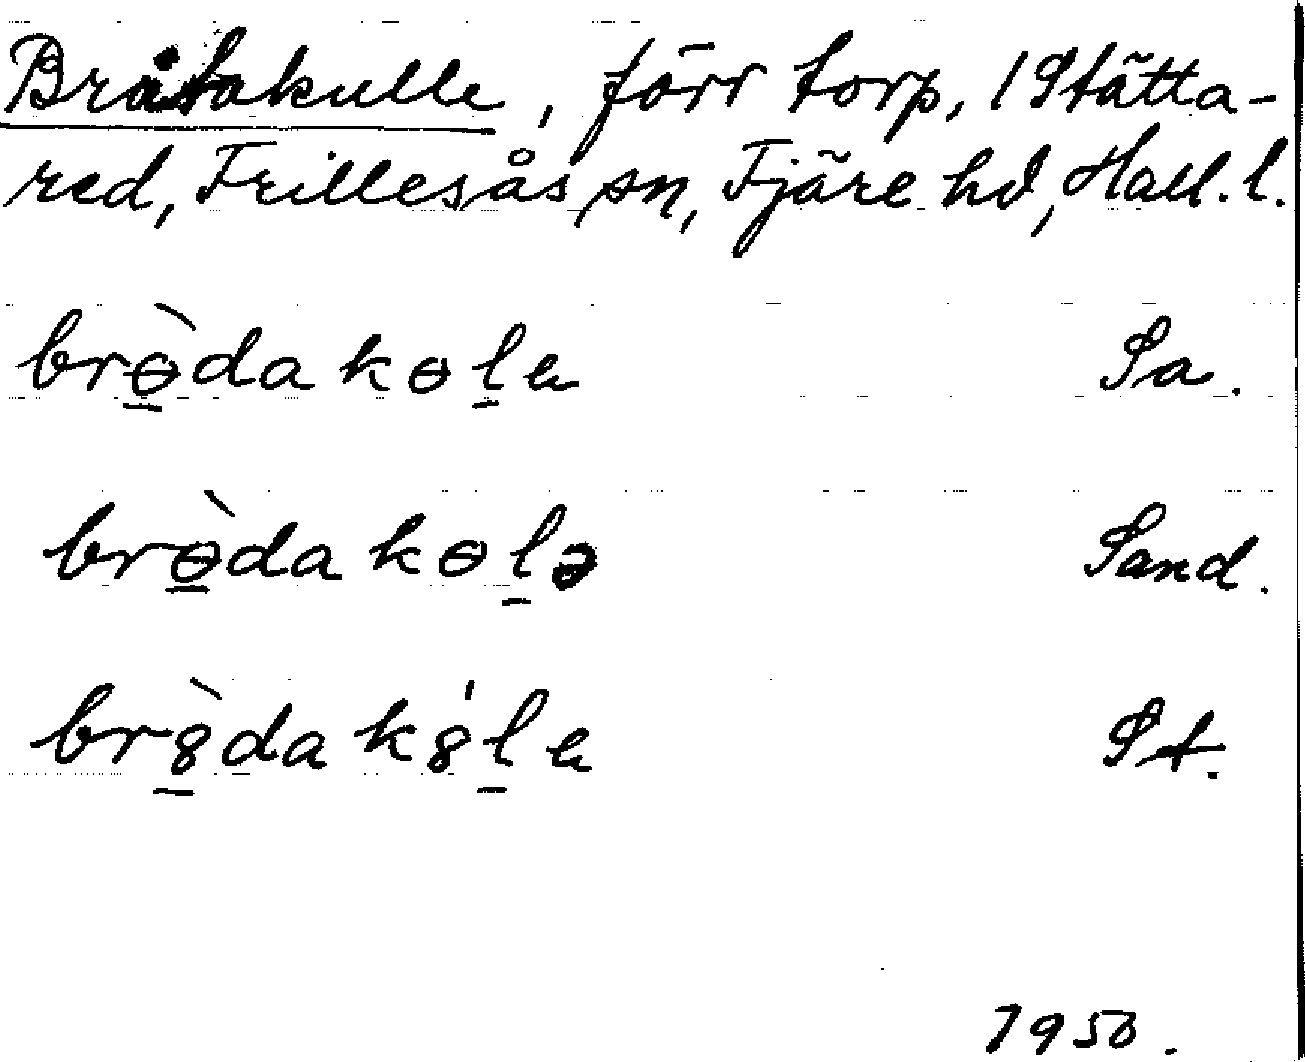 Bråtakulle, förr torp, 1 Stätta-
red, Frillesås sn, Fjäre hd, Hall. l.
brɵ̱̀dakɵḻe Sa.
brɵ̱̀dakɵḻə Sand.
br8̱̀dak8́ḻe St.
1950.